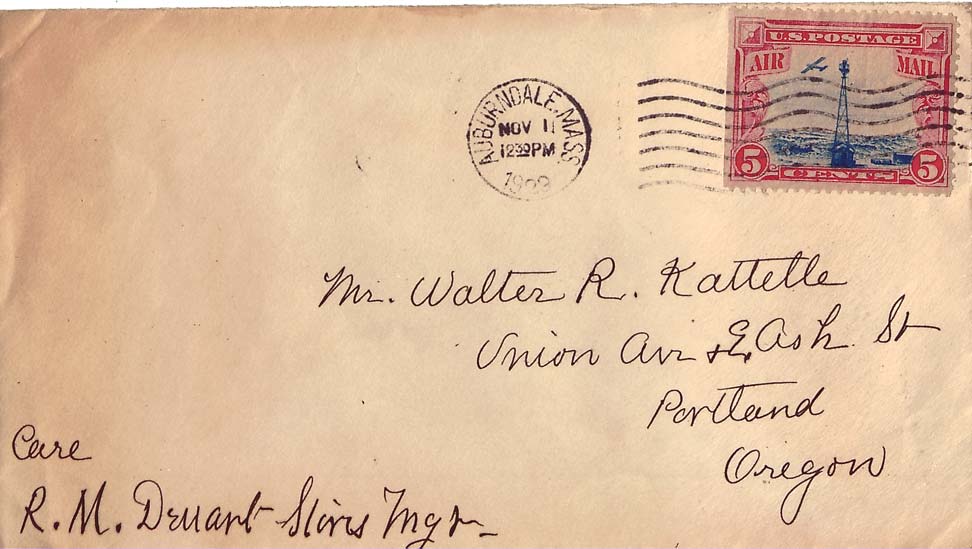 U.S. POSTAGE
AIR MAIL
5 CENTS 5
AUBURNDALE, MASS.
NOV 11
12 30 PM
1929
Mr. Walter R. Kattelle
Union Ave & E. Ash St
Portland
Oregon
Care
R. M.